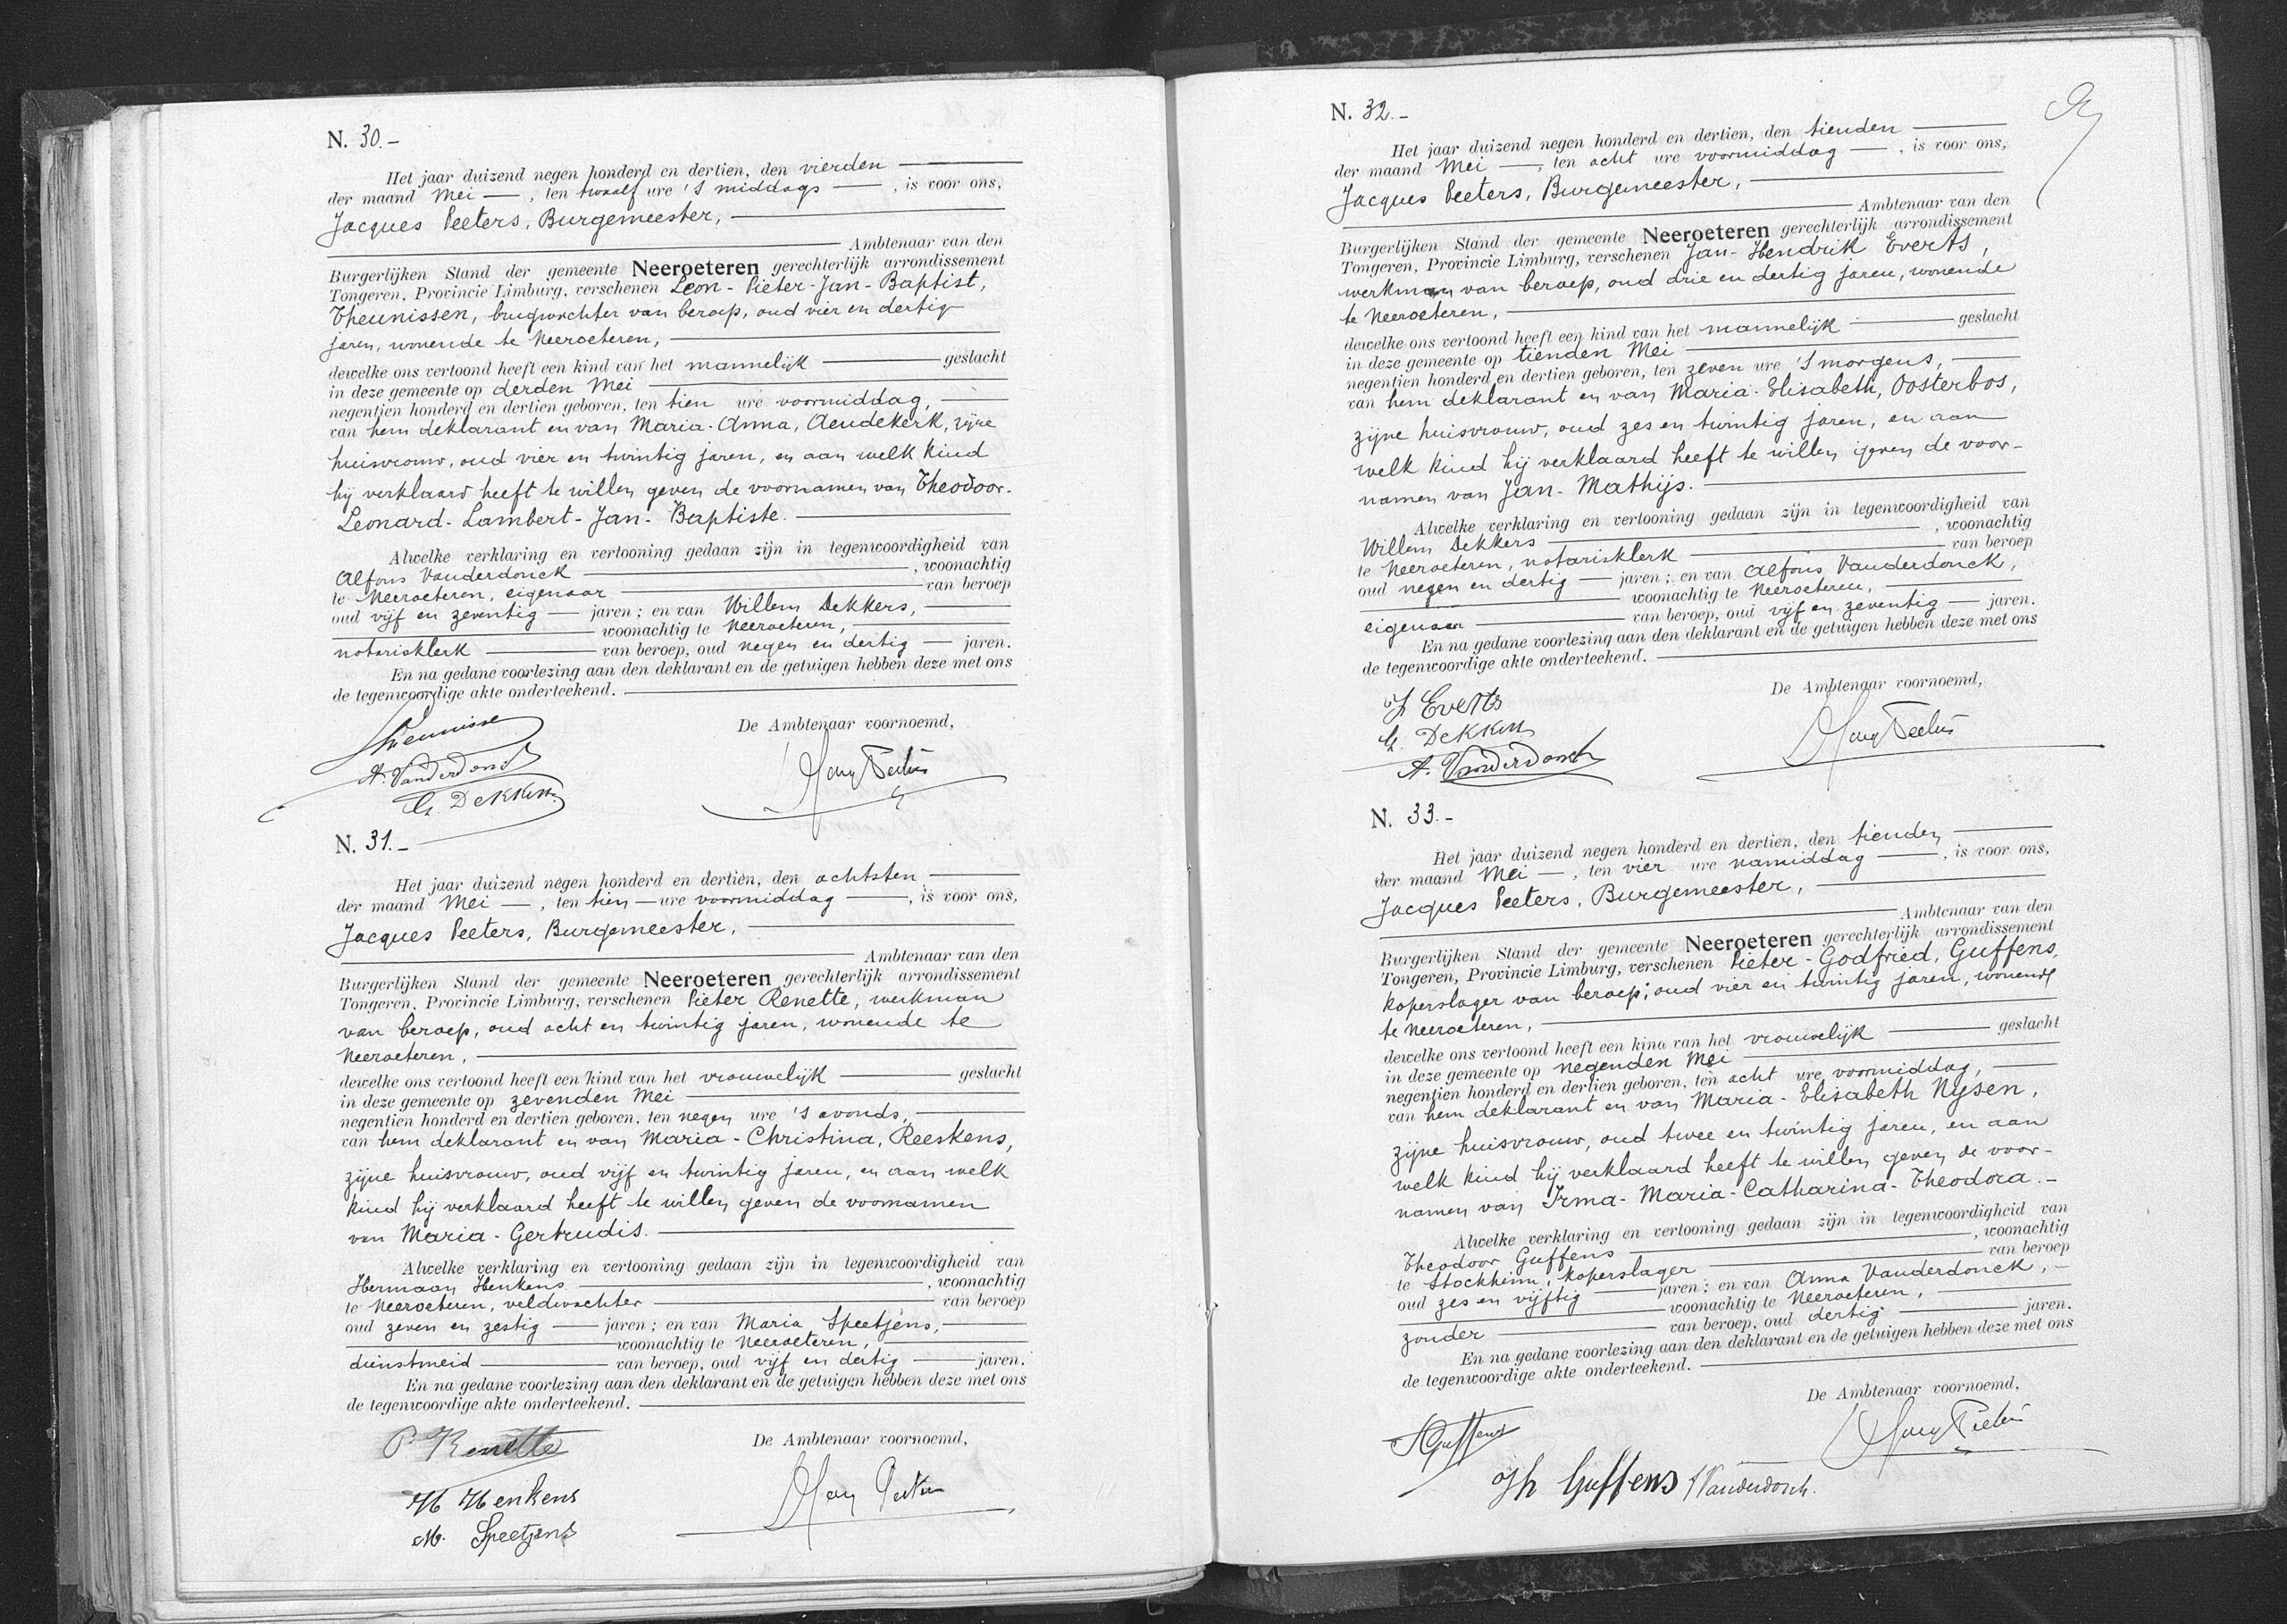 N. 30.-
Het jaar duizend negen honderd en dertien, den vierden
der maand Mei —, ten twaalf ure 's middags —, is voor ons,
Jacques Peeters, Burgemeester,
Ambtenaar van den
Burgerlijken Stand der gemeente Neeroeteren gerechterlijk arrondissement
Tongeren, Provincie Limburg, verschenen Leon-Pieter-Jan-Baptist,
Theunissen, brugwachter van beroep, oud vier en dertig
jaren, wonende te Neeroeteren,
dewelke ons vertoond heeft een kind van het mannelijk geslacht
in deze gemeente op derden Mei
negentien honderd en dertien geboren, ten tien ure voormiddag,
van hem deklarant en van Maria-Anna, Aendekerk, zijne
huisvrouw, oud vier en twintig jaren, en aan welk kind
hij verklaard heeft te willen geven de voornamen van Theodoor-
Leonard-Lambert-Jan-Baptiste.
Alwelke verklaring en vertooning gedaan zijn in tegenwoordigheid van
Alfons Vanderdonck , woonachtig
te Neeroeteren, eigenaar van beroep
oud vijf en zeventig — jaren; en van Willem Dekkers,
woonachtig te Neeroeteren,
notarisklerk van beroep, oud negen en dertig — jaren.
En na gedane voorlezing aan den deklarant en de getuigen hebben deze met ons
de tegenwoordige akte onderteekend.
De Ambtenaar voornoemd,
Theunisse
A. Vanderdonck
G. Dekkers
N. 31.-
Het jaar duizend negen honderd en dertien, den achtsten
der maand Mei —, ten tien — ure voormiddag —, is voor ons,
Jacques Peeters, Burgemeester,
Ambtenaar van den
Burgerlijken Stand der gemeente Neeroeteren gerechterlijk arrondissement
Tongeren, Provincie Limburg, verschenen Pieter Renette, werkman
van beroep, oud acht en twintig jaren, wonende te
Neeroeteren,
dewelke ons vertoond heeft een kind van het vrouwelijk geslacht
in deze gemeente op zevenden Mei
negentien honderd en dertien geboren, ten negen ure 's avonds,
van hem deklarant en van Maria-Christina, Reeskens,
zijne huisvrouw, oud vijf en twintig jaren, en aan welk
kind hij verklaard heeft te willen geven de voornamen
van Maria-Gertrudis.
Alwelke verklaring en vertooning gedaan zijn in tegenwoordigheid van
Hermaan Henkens , woonachtig
te Neeroeteren, veldwachter van beroep
oud zeven en zestig — jaren; en van Maria Speetjens,
woonachtig te Neeroeteren,
dienstmeid van beroep, oud vijf en dertig — jaren.
En na gedane voorlezing aan den deklarant en de getuigen hebben deze met ons
de tegenwoordige akte onderteekend.
De Ambtenaar voornoemd,
P Renette
H Henkens
M. Speetjens
N. 32.-
Het jaar duizend negen honderd en dertien, den tienden
der maand Mei —, ten acht ure voormiddag —, is voor ons,
Jacques Peeters, Burgemeester,
Ambtenaar van den
Burgerlijken Stand der gemeente Neeroeteren gerechterlijk arrondissement
Tongeren, Provincie Limburg, verschenen Jan-Hendrik Everts,
werkman van beroep, oud drie en dertig jaren, wonende
te Neeroeteren,
dewelke ons vertoond heeft een kind van het mannelijk geslacht
in deze gemeente op tienden Mei
negentien honderd en dertien geboren, ten zeven ure 's morgens,
van hem deklarant en van Maria-Elisabeth, Oosterbos,
zijne huisvrouw, oud zes en twintig jaren, en aan
welk kind hij verklaard heeft te willen geven de voor-
namen van Jan-Mathijs.
Alwelke verklaring en vertooning gedaan zijn in tegenwoordigheid van
Willem Dekkers , woonachtig
te Neeroeteren, notarisklerk van beroep
oud negen en dertig — jaren; en van Alfons Vanderdonck,
woonachtig te Neeroeteren,
eigenaar van beroep, oud vijf en zeventig — jaren.
En na gedane voorlezing aan den deklarant en de getuigen hebben deze met ons
de tegenwoordige akte onderteekend.
De Ambtenaar voornoemd,
J Everts
G. Dekkers
A. Vanderdonck
N. 33.-
Het jaar duizend negen honderd en dertien, den tienden
der maand Mei —, ten vier ure namiddag —, is voor ons,
Jacques Peeters, Burgemeester,
Ambtenaar van den
Burgerlijken Stand der gemeente Neeroeteren gerechterlijk arrondissement
Tongeren, Provincie Limburg, verschenen Pieter-Godfried, Guffens,
koperslager van beroep, oud vier en twintig jaren, wonende
te Neeroeteren,
dewelke ons vertoond heeft een kind van het vrouwelijk geslacht
in deze gemeente op negenden Mei
negentien honderd en dertien geboren, ten acht ure voormiddag,
van hem deklarant en van Maria-Elisabeth Nysen,
zijne huisvrouw, oud twee en twintig jaren, en aan
welk kind hij verklaard heeft te willen geven de voor-
namen van Irma-Maria-Catharina-Theodora.-
Alwelke verklaring en vertooning gedaan zijn in tegenwoordigheid van
Theodoor Guffens , woonachtig
te Stockheim, koperslager van beroep
oud zes en vijftig — jaren; en van Anna Vanderdonck,-
woonachtig te Neeroeteren,
zonder van beroep, oud dertig jaren.
En na gedane voorlezing aan den deklarant en de getuigen hebben deze met ons
de tegenwoordige akte onderteekend.
De Ambtenaar voornoemd,
Guffens
Th Guffens